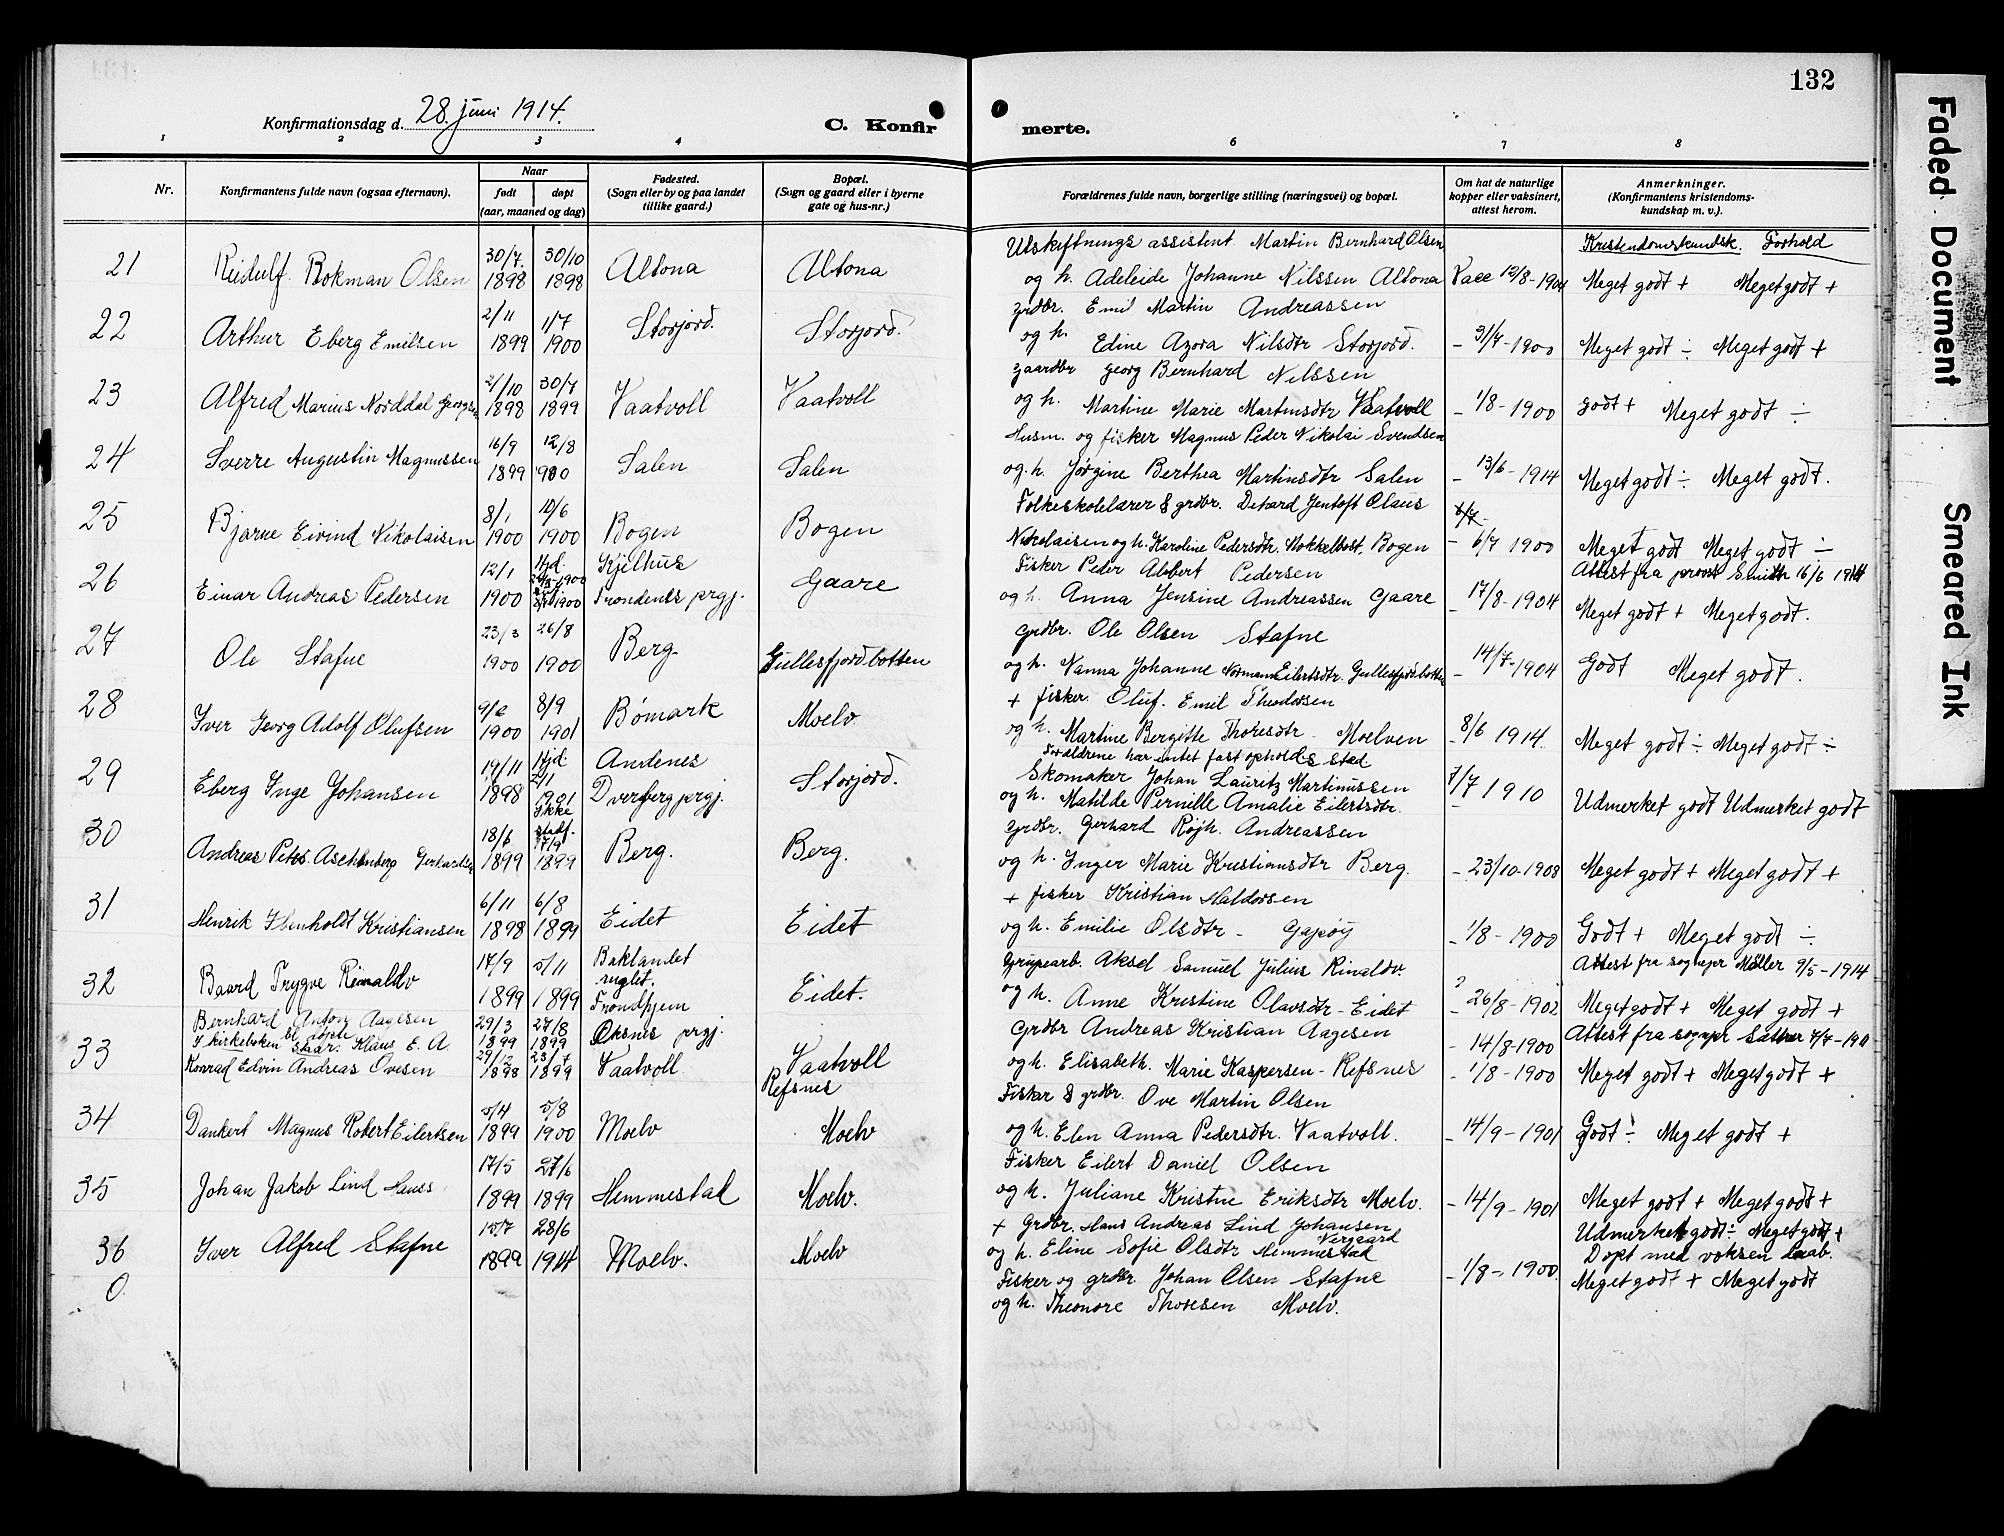 132
Konfirmationsdag d. 28. juni 1914.
C. Konfirmerte.
1 2 3 4 5 6 7 8
Nr.
Konfirmantens fulde navn (ogsaa efternavn).
Naar
født
døpt
(aar, maaned og dag)
Fødested.
(Sogn eller by og paa landet
tillike gaard.)
Bopæl.
(Sogn og gaard eller i byerne
gate og hus-nr.)
Forældrenes fulde navn, borgerlige stilling (næringsvei) og bopæl.
Om hat de naturlige
kopper eller vaksinert,
attest herom.
Anmerkninger.
(Konfirmantens kristendoms-
kundskap m. v.).
Kristendomskundsk. Forhold
21 Reidulf Bokman Olsen 30/7 1898 30/10 1898 Altona Altona
Utskiftnings assistent Martin Bernhard Olsen
og h. Adeleide Johanne Nilssen Altona Vacc 12/8-1904 Meget godt + Meget godt +
22 Arthur Eberg Emilsen 2/11 1899 1/7 1900 Storjord. Storjord.
grdbr. Emil Martin Andreassen
og h. Edine Azora Nilsdtr Storjord. - 31/7-1900 Meget godt ÷ Meget godt +
23 Alfred Marius Norddal Georgsen 2/10 1898 30/7 1899 Vaatvoll Vaatvoll
gaardbr Georg Bernhard Nilssen
og h. Martine Marie Martinsdtr Vaatvoll - 1/8-1900 godt + Meget godt ÷
24 Sverre Augustin Magnussen 16/9 1899 12/8 1900 Salen Salen
Husm. og fisker Magnus Peder Nikolai Svendsen
og h. Jørgine Berthea Martinsdtr Salen - 13/6-1914 Meget godt ÷ Meget godt.
25 Bjarne Eivind Nikolaisen 8/1 1900 10/6 1900 Bogen Bogen
Folkeskolelærer & grdbr. Dethard Jentoft Olaus
Nikolaisen og h. Karoline Pedersdtr. Stokkelbost, Bogen - 6/7 1900 Meget godt Meget godt ÷
26 Einar Andreas Pedersen 12/1 1900 Hjd. Kjelhus Trondenes prgj. Gaare
Fisker Peder Albert Pedersen
og h. Anna Jensine Andreassen Gaare - 17/8-1904
Attest fra prost Smith 16/6 1914
Meget godt + Meget godt.
27 Ole Stafne 23/3 1900 26/8 1900 Berg Gullesfjordbotten
Grdbr. Ole Olsen Stafne
og h. Nanna Johanne Normann Eilertsdtr. Gullesfjordbotten - 14/7-1904 Godt Meget godt.
28 Iver Georg Adolf Olufsen 9/6 1900 8/9 1901 Bømark Moelv
+ fisker Oluf Emil Theodorsen
og h. Martine Bergitte Thoresdtr - Moelven - 8/6 1914. Meget godt ÷ Meget godt ÷
29 Eberg Inge Johansen 19/11 1898 Hjd. 2/1 1901 Ikke stadf. Andenes Dverberg prgj. Storjord.
Forældrene har intet fast opholdssted
Skomaker Johan Lauritz Martinussen
og h. Matilde Pernille Amalie Eilertsdtr. 7/7 1910 Udmerket godt Udmerket godt
30 Andreas Peter Aschenberg Gerhardsen 18/6 1899 17/9 1899 Berg. Berg.
Grdbr. Gerhard Røjh. Andreassen
og h. Inger Marie Kristiansdtr Berg. - 23/10-1908 Meget godt + Meget godt +
31 Henrik Ibenholdt Kristiansen 6/11 1898 6/8 1899 Eidet Eidet
+ fisker Kristian Haldorsen
og h. Emilie Olsdtr - Gapøy - 1/8-1900 Godt + Meget godt ÷
32 Baard Trygve Rinaldv 17/9 1899 5/11 1899 Baklandet Trondhjem Eidet.
Grubearb. Aksel Samuel Julius Rinaldv.
og h. Anne Kristine Olavsdtr - Eidet - 26/8-1902
Attest fra sognepr Møller 9/5-1914
Meget godt + Meget godt +
33 Bernhard Anton Aagesen
I kirkeboken staar: Klaus E. A. 29/3 1899 27/8 1899 Øksnes prgj. Refsnes
Grdbr Andreas Kristian Aagesen
og h. Elisabeth Marie Kaspersen - Refsnes - 14/8-1900
Attest fra sognepr Sæther 7/7-1911
Konrad Edvin Andreas Ovesen 29/12 1898 23/7 1899 Vaatvoll Vaatvoll
Fisker & grdbr. Ove Martin Olsen
og h. Elen Anna Pedersdtr. Vaatvoll. - 1/8-1900 Meget godt + Meget godt +
34 Dankert Magnus Robert Eilertsen 5/4 1899 5/8 1900 Moelv Moelv
Fisker Eilert Daniel Olsen
og h. Juliane Kristine Eriksdtr Moelv. - 14/9-1901 Godt ÷ Meget godt +
35 Johan Jakob Lind Hanss. 17/5 1899 27/6 1899 Hemmestad Moelv.
+ Grdbr. Hans Andreas Lind Johansen
og h. Eline Sofie Olsdtr Hemmestad - 14/9-1901 Meget godt + Meget godt +
36 Iver Alfred Stafne 15/7 1899 28/6 1914 Moelv. Moelv
Fisker og grdbr Johan Olsen Stafne
og h. Theonore Thoresen Moelv. - 1/8-1900.
Udmerket godt ÷ Meget godt +
Døpt med voksen daab.
Meget godt + Meget godt
0
Faded Document
Smeared Ink